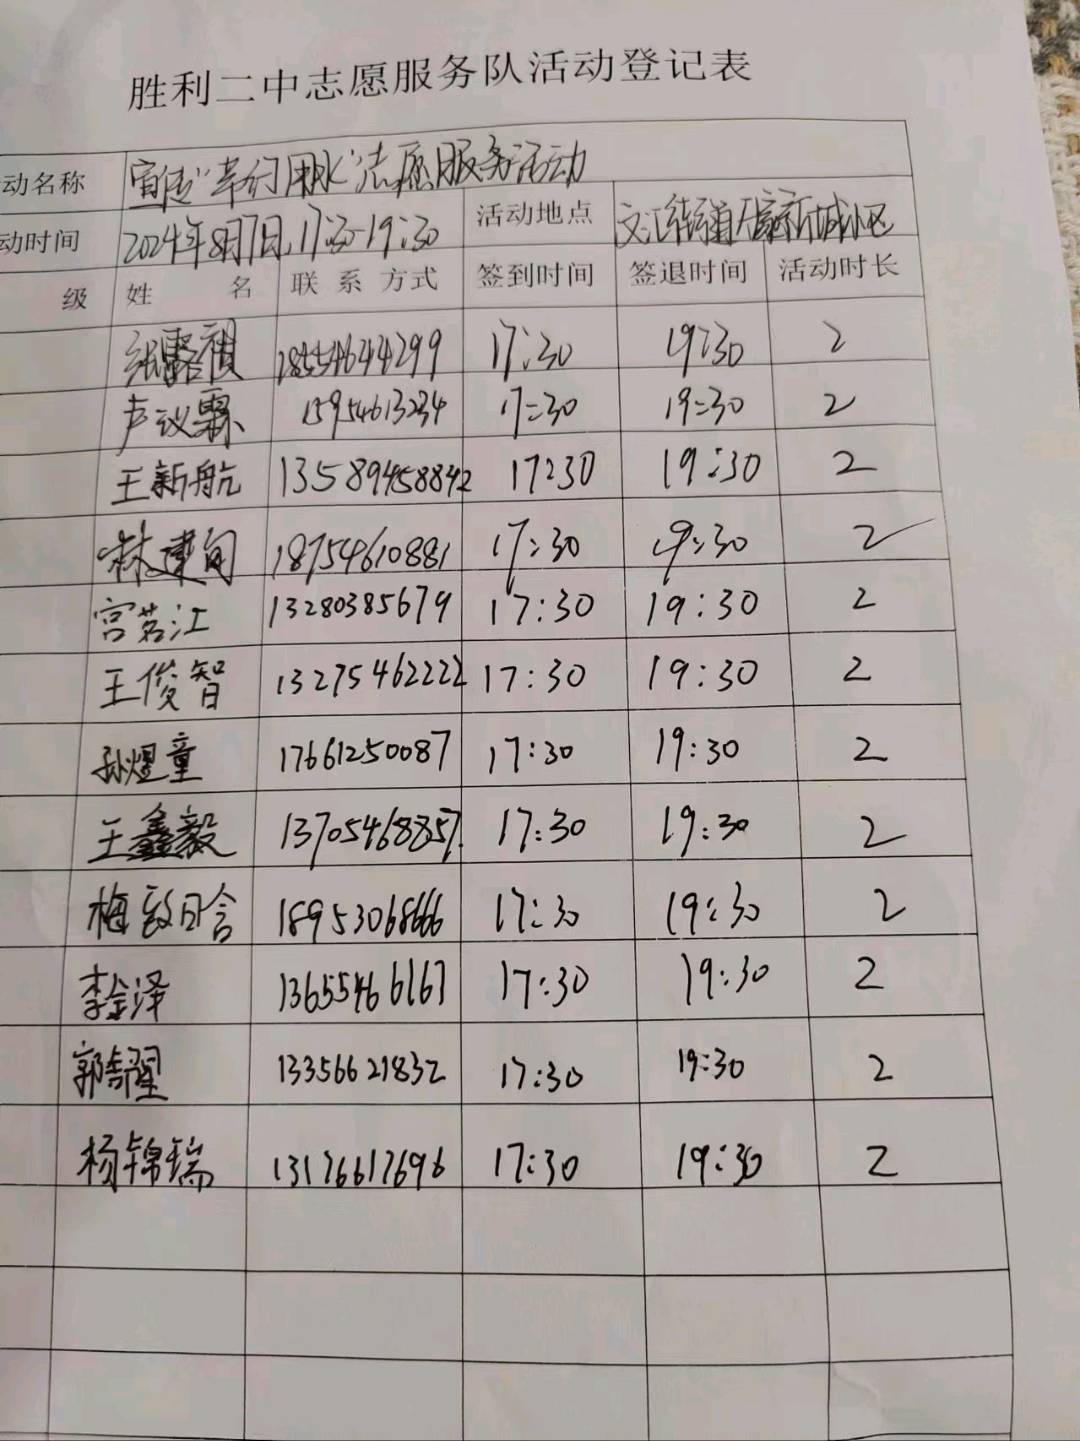 胜利二中志愿服务队活动登记表
动名称 宣传"节约用水"志愿服务活动
动时间 2024年8月7日,17:30-19:30 活动地点 文汇街道
级 姓 名 联系方式 签到时间 签退时间 活动时长
张 18554644299 17:30 19:30 2
卢议霖 15954613234 17:30 19:30 2
王新航 13589458842 17:30 19:30 2
林建 18754610881 17:30 19:30 2
宫茗江 13280385679 17:30 19:30 2
王俊智 13275462222 17:30 19:30 2
孙煜童 17661250087 17:30 19:30 2
王鑫毅 13705468857 17:30 19:30 2
梅 18953068666 17:30 19:30 2
李金泽 13655466167 17:30 19:30 2
郭 13356621832 17:30 19:30 2
杨锦瑞 13176617696 17:30 19:30 2